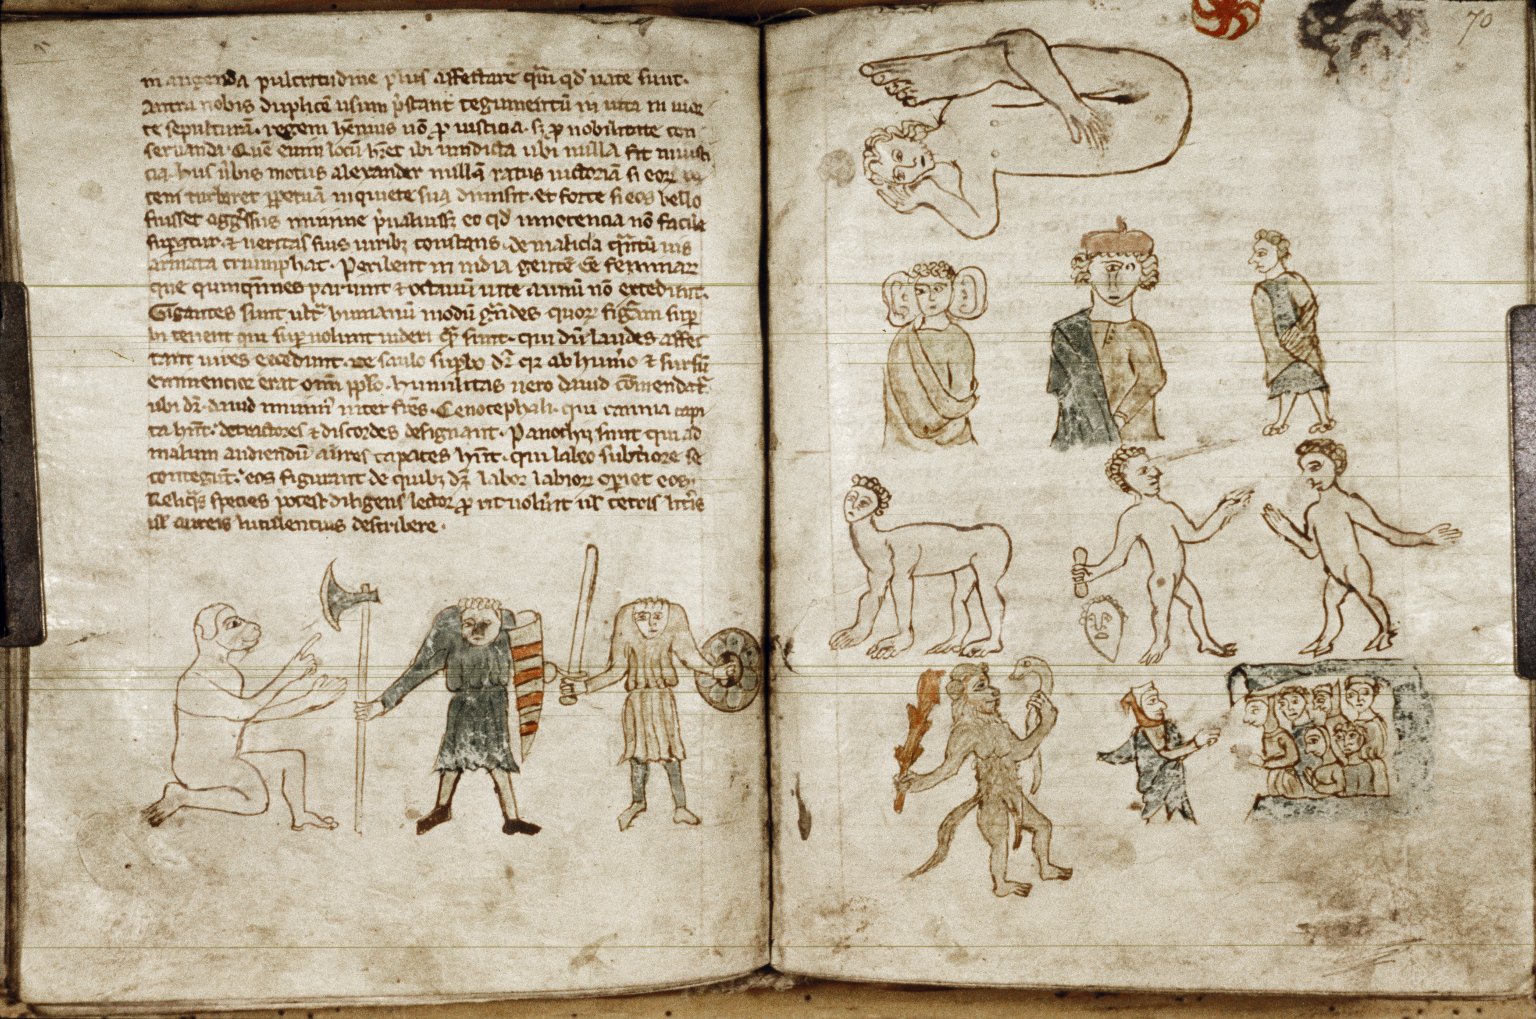 in augenda pulcritudine pl'us affectare qm̄ qd' nate sunt.
Antra nobis duplicē usum p̄stant tegumentū in uita in mor
te sepulturam. regem hēmus nō ꝓ iusticia. sꝫ ꝓ nobilitate con
seruanda. Quē enim locū hr̄et ibi uindicta ubi nulla fit iniusti
cia. hiis ūbis motus alexander nullā ratus uictoriā si eoꝝ
cem turbaret ꝑpetuā in quiete sua dimisit. et forte si eos bello
fuisset aggressus minime p̄ualuisset eo qd' innocencia nō facile
supatur. & ueritas suis uiribꝫ constans. de malicia qm̄tū uis
armata triumphat. Peribent in india gentē ēē feminaꝝ
que quinquēnnes pariunt & octauū uite annū nō excedunt.
Gigantes sunt ultra humanū modū grādes quoꝝ figam sup
bi tenent qui sup uolunt uideri qm̄ sunt. qui dū laudes affec
tant uires excedunt. De saulo supbo dr̄ qꝫ ab humo & sursū
eminencior erat omi pplo. humilitas uero dauid cōmendat
ubi dr̄. dauid minim' inter fres. Cenocephali. qui canina capi
ta hnt. detractores & discordes designant. Panothii sunt qui ad
malum audiendū aures capaces hnt. qui labeo subtriore se
contegunt. eos figurant de quibꝫ dr̄ labor labioꝝ opiet eos.
Reliqˢ species potest diligens lector ꝓ ut uolūit ul' ceteris litris
ul' aureis luculentius describere.
70